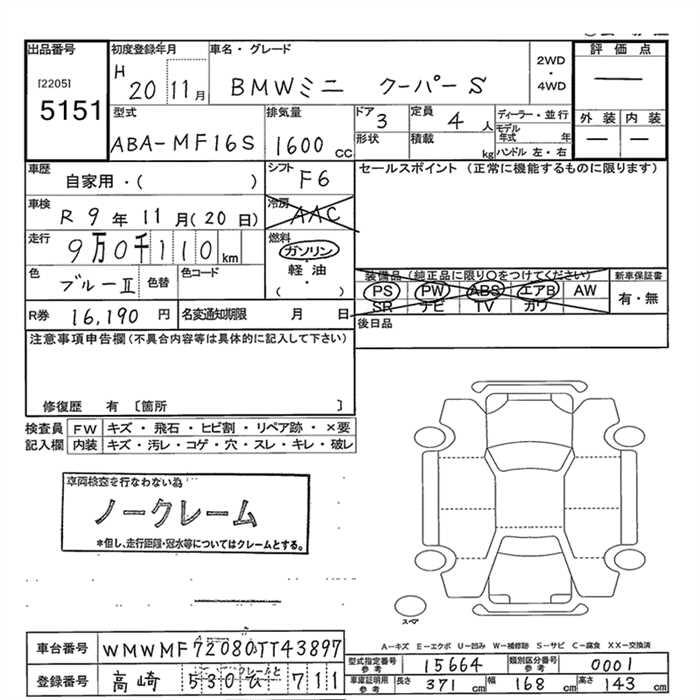 出品番号 初度登録年月 車名・グレード 2WD・4WD 評価点
[2205] H 20 11月 BMWミニ クーパーS —
5151
型式 排気量 ドア 定員 ディーラー・並行 外装 内装
ABA-MF16S 1600 CC 3 4 人 モデル年式 年 — —
形状 積載 kg ハンドル 左・右
車歴 シフト セールスポイント (正常に機能するものに限ります)
自家用・( ) F6
車検 冷房
R 9 年 11 月(20 日) AAC
走行 燃料
9万0千110 km ガソリン
軽・油
( )
色 色替 色コード 装備品(純正品に限り○をつけてください) 新車保証書
ブルーII PS PW ABS エアB AW 有・無
SR ナビ TV カワ
R券 16,190 円 名変通知期限 月 日 後日品
注意事項申告欄(不具合内容等は具体的に記入して下さい)
修復歴 有 〔箇所 〕
検査員 FW キズ・飛石・ヒビ割・リペア跡・×要
記入欄 内装 キズ・汚レ・コゲ・穴・スレ・キレ・破レ
車両検査を行なわない為
ノークレーム
*但し、走行距離・冠水等についてはクレームとする。
スペア
A-キズ E-エクボ U-凹み W-補修跡 S-サビ C-腐食 XX-交換済
車台番号 WMWMF72080TT43897 型式指定番号 15664 類別区分番号 0001
登録番号 高崎 530 ひ 711 車庫証明用参考 長さ 371 cm 幅 168 cm 高さ 143 cm